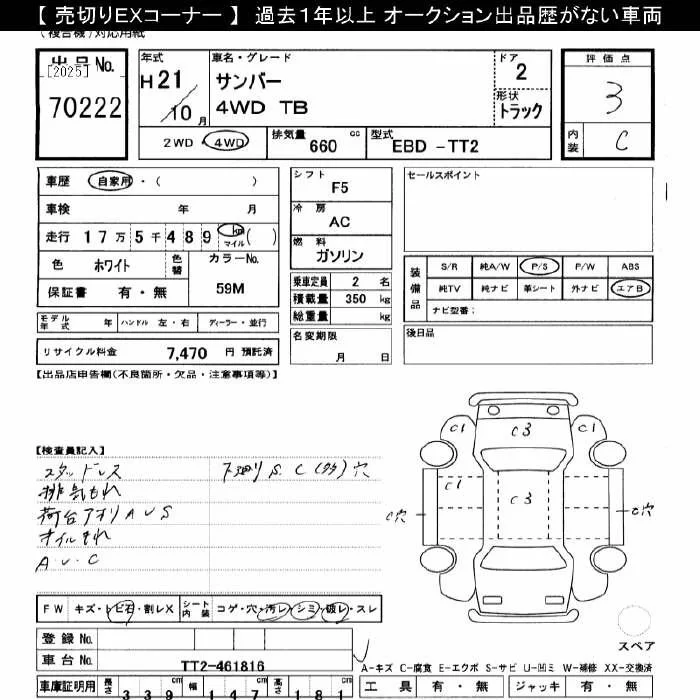 【 売切りEXコーナー 】 過去１年以上 オークション出品歴がない車両
(複合機)対応用紙
出品No. [2025] 70222
年式 H21 / 10月
車名・グレード サンバー 4WD TB
ドア 2
形状 トラック
2WD・4WD 排気量 660 cc 型式 EBD -TT2
評価点 3
内装 C
車歴 自家用・( )
車検 年 月
走行 17万5千489 km マイル ( )
色 ホワイト 色替 カラーNo. 59M
保証書 有・無
モデル年式 年 ハンドル 左・右 ディーラー・並行
リサイクル料金 7,470 円 預託済
シフト F5
冷房 AC
燃料 ガソリン
乗車定員 2 名
積載量 350 kg
総重量 kg
名変期限 月 日
セールスポイント
装備品
S/R 純A/W P/S P/W ABS
純TV 純ナビ 革シート 外ナビ エアB
ナビ型番:
後日品
【出品店申告欄(不良箇所・欠品・注意事項等)】
【検査員記入】
スタッドレス 下廻りS、C(多)穴
排気もれ
荷台アオリAUS
オイルもれ
A・U・C
C1 C3 C1
C1 C3
C穴 C穴
FW キズ・トビ石・割レX シート内装 コゲ・穴・汚レ・シミ・破レ・スレ
登録No.
車台No. TT2-461816
スペア
A-キズ C-腐食 E-エクボ S-サビ U-凹ミ W-補修 XX-交換済
車庫証明用 長さ 339 cm 幅 147 cm 高さ 181 cm
工具 有・無 ジャッキ 有・無